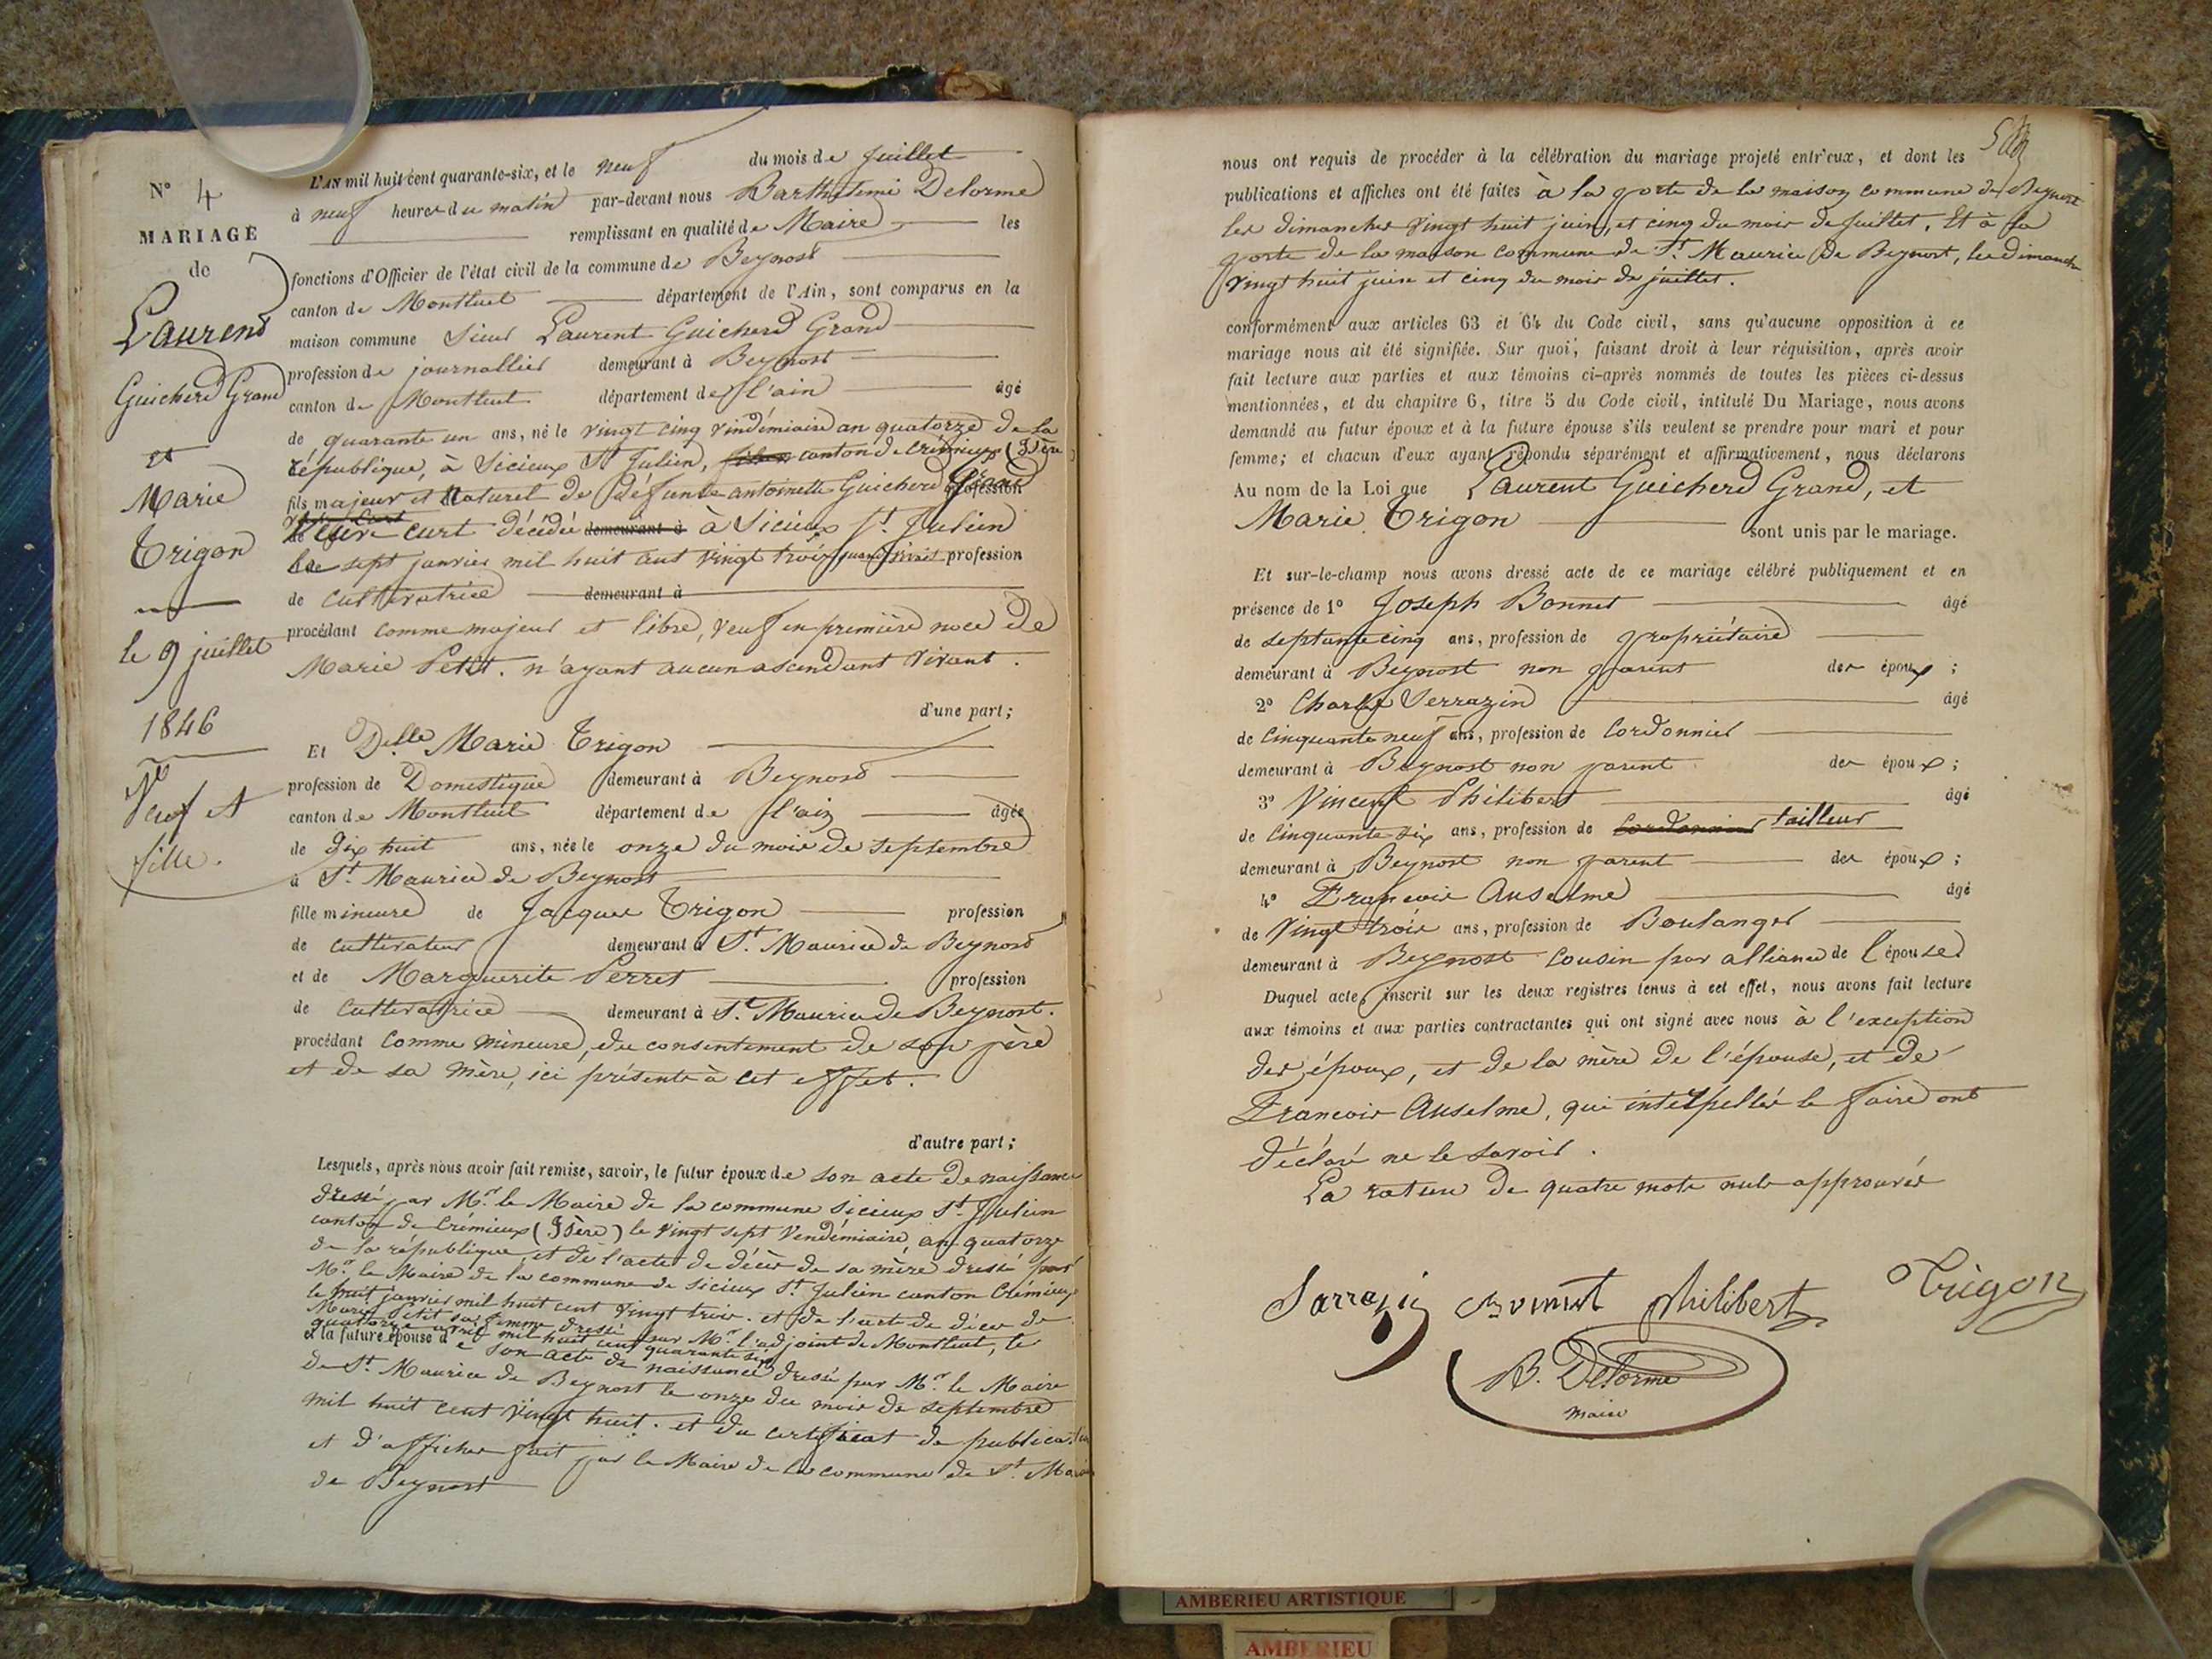 N° 4
MARIAGE
de
Laurend
Guicherd Grand
et
Marie
Trigon
le 9 juillet
1846
Veuf et
fille.
L'AN mil huit cent quarante-six, et le neuf du mois de Juillet
à neuf heures du matin par-devant nous Barthelemi Delorme
remplissant en qualité de Maire les
fonctions d'Officier de l'état civil de la commune de Beynost
canton de Montluel département de l'Ain, sont comparus en la
maison commune Sieur Laurent Guicherd Grand
profession de journallier demeurant à Beynost
canton de Montluel département de l'ain âgé
de quarante un ans, né le vingt cinq vindémiaire an quatorze de la
république, à Sicieux St Julien, canton de Crémieux (Isère)
fils majeur et Naturel de défunte antoinette Guicherd Grand profession
veuve curt décédée demeurant à à Sicieux St. Julien
le sept janvier mil huit cent vingt trois quand vivait profession
de cultivatrice demeurant à
procédant comme majeur et libre, veuf en première noce de
Marie Petit. n'ayant aucun ascendant vivant.
d'une part;
Et Delle Marie Trigon
profession de Domestique demeurant à Beynost
canton de Montluel département de l'ain âgée
de dix huit ans, née le onze du mois de septembre
à St. Maurice de Beynost
fille mineure de Jacques Trigon profession
de cultivateur demeurant à St. Maurice de Beynost
et de Marguerite Perret profession
de cultivatrice demeurant à St. Maurice de Beynost.
procédant comme mineure, du consentement de son père
et de sa mère, ici présents à cet effet.
d'autre part;
Lesquels, après nous avoir fait remise, savoir, le futur époux de son acte de naissance
dressé par Mr. le Maire de la commune Sicieux St. Julien
canton de Crémieux (Isère) le vingt sept Vendémiaire, an quatorze
de la république, et de l'acte de décès de sa mère dressé par
Mr. le Maire de la commune de Sicieux St. Julien canton Crémieux
le huit janvier mil huit cent vingt trois. et de l'acte de décès de
Marie Petit sa femme dressé par Mr. l'adjoint de Montluel, le
quatorze avril mil huit cent quarante six
et la future épouse de son acte de naissance dressé par Mr. le Maire
de St. Maurice de Beynost le onze du mois de septembre
mil huit cent vingt huit. et du certificat de publication
et d'affiches fait par le Maire de la commune de St. Maurice
de Beynost
nous ont requis de procéder à la célébration du mariage projeté entr'eux, et dont les
publications et affiches ont été faites à la porte de la maison commune de Beynost
les dimanches vingt huit juin, et cinq du mois de Juillet. Et à la
porte de la maison commune de St. Maurice de Beynost, les dimanche
vingt huit juin et cinq du mois de juillet.
conformément aux articles 63 et 64 du Code civil, sans qu'aucune opposition à ce
mariage nous ait été signifiée. Sur quoi, faisant droit à leur réquisition, après avoir
fait lecture aux parties et aux témoins ci-après nommés de toutes les pièces ci-dessus
mentionnées, et du chapitre 6, titre 5 du Code civil, intitulé Du Mariage, nous avons
demandé au futur époux et à la future épouse s'ils veulent se prendre pour mari et pour
femme; et chacun d'eux ayant répondu séparément et affirmativement, nous déclarons
Au nom de la Loi que Laurent Guicherd Grand, et
Marie Trigon sont unis par le mariage.
Et sur-le-champ nous avons dressé acte de ce mariage célébré publiquement et en
présence de 1° Joseph Bonnet âgé
de septante cinq ans, profession de propriétaire
demeurant à Beynost non parent des époux;
2° Charles Serrazin âgé
de cinquante neuf ans, profession de Cordonnier
demeurant à Beynost non parent des époux;
3° Vincent Philibert âgé
de cinquante six ans, profession de cordonnier tailleur
demeurant à Beynost non parent des époux;
4° Francois Anselme âgé
de vingt trois ans, profession de Boulanger
demeurant à Beynost cousin par alliance de l'épouse
Duquel acte, inscrit sur les deux registres tenus à cet effet, nous avons fait lecture
aux témoins et aux parties contractantes qui ont signé avec nous à l'exception
des époux, et de la mère de l'épouse, et de
Francois Anselme, qui interpellés le faire ont
déclaré ne le savoir.
La rature de quatre mots nuls approuvée
Sarrazin Bonnet Philibert Trigon
B. Delorme
maire
AMBERIEU ARTISTIQUE
AMBERIEU